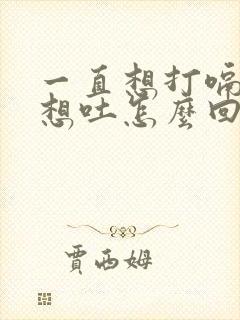 一直想打嗝
想吐怎麼回
賈西姆